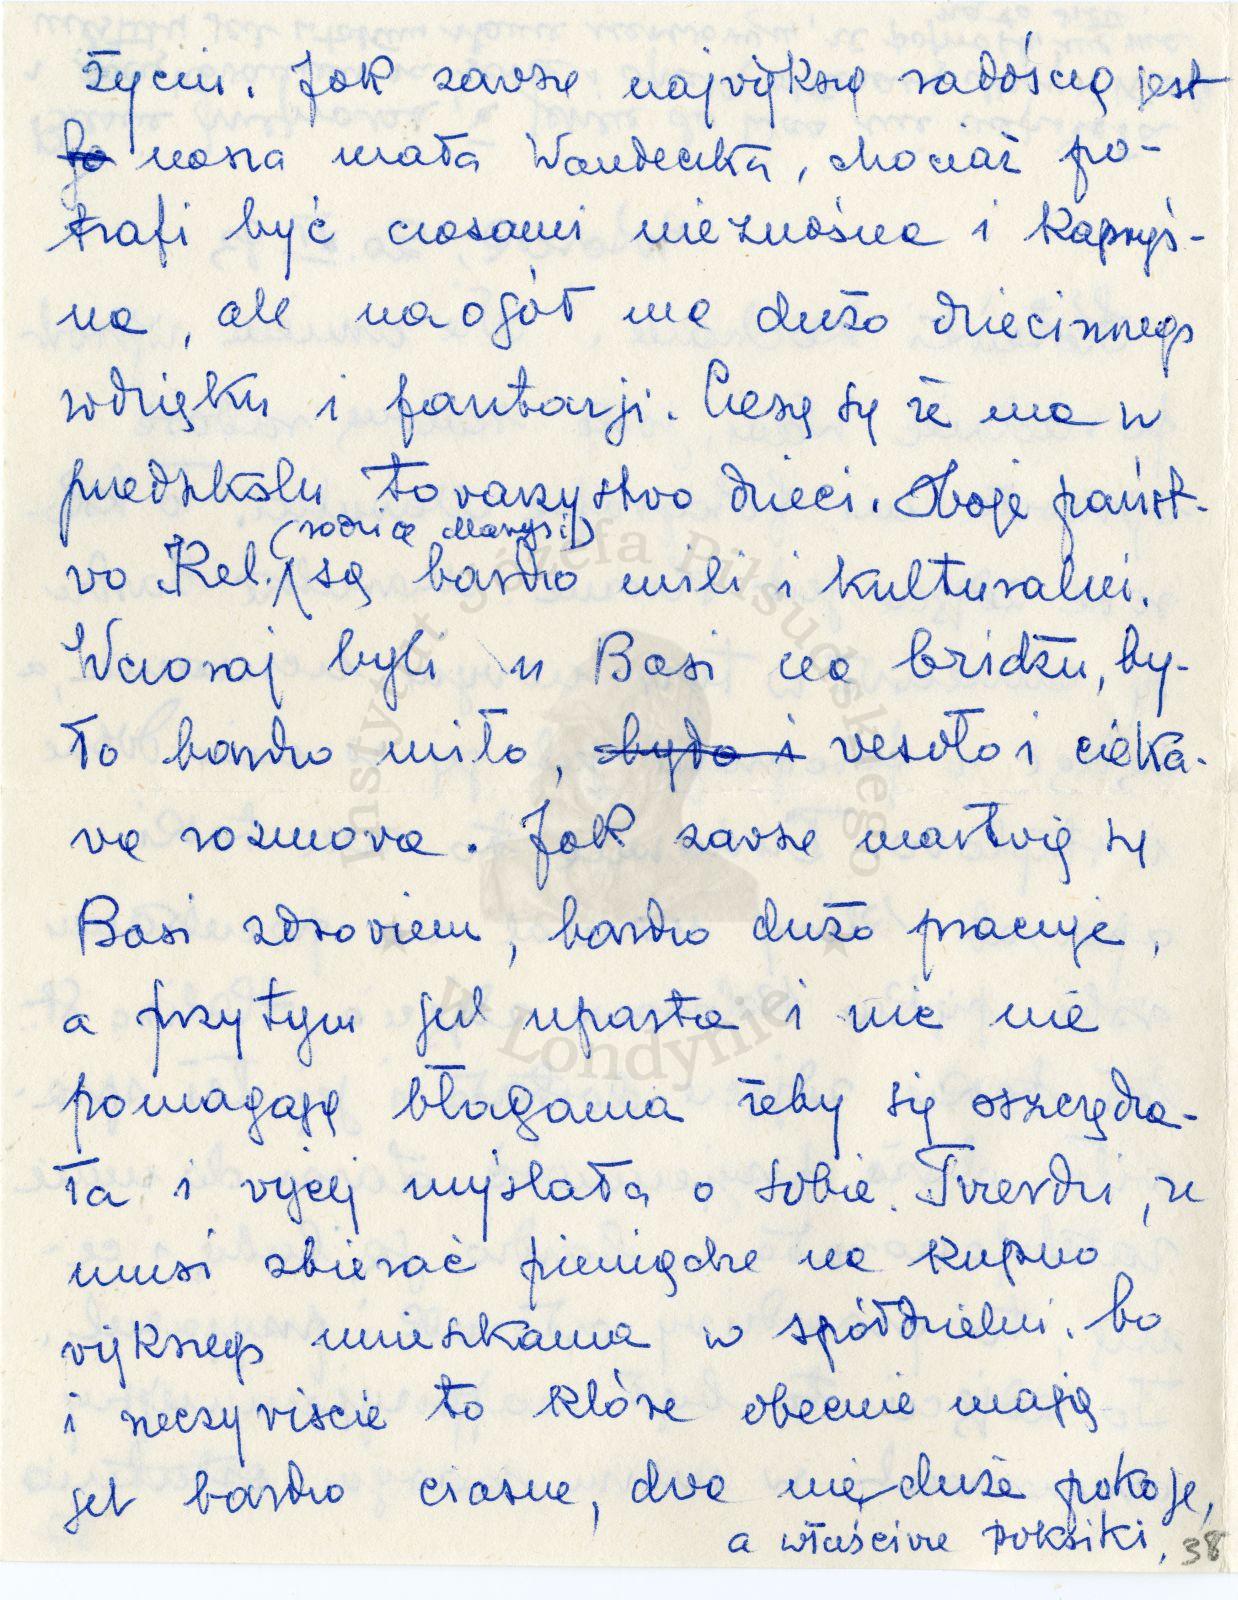 życiu. Jak zawsze największą radością jest
nasza mała Wandeczka, chociaż po-
trafi być czasami nieznośna i kapryś-
na, ale naogół ma dużo dziecinnego
wdzięku i fantazji. Cieszę się że ma w
przedszkolu towarzystwo dzieci. Oboje państ-
(rodzice Marysi)
wo Rel. są bardzo mili i kulturalni.
Wczoraj byli u Basi na bridżu, by-
ło bardzo miło, było i wesoło i cieka-
wa rozmowa. Jak zawsze martwię się
Basi zdrowiem, bardzo dużo pracuje,
a przytym jest uparta i nic nie
pomagają błagania żeby się oszczędza-
ła i więcej myślała o sobie. Twierdzi, że
musi zbierać pieniądze na kupno
większego mieszkania w spółdzielni, bo
i rzeczywiście to które obecnie mają
jest bardzo ciasne, dwa nie duże pokoje,
a właściwie pokoiki,
38
Instytut Józefa Piłsudskiego
w Londynie